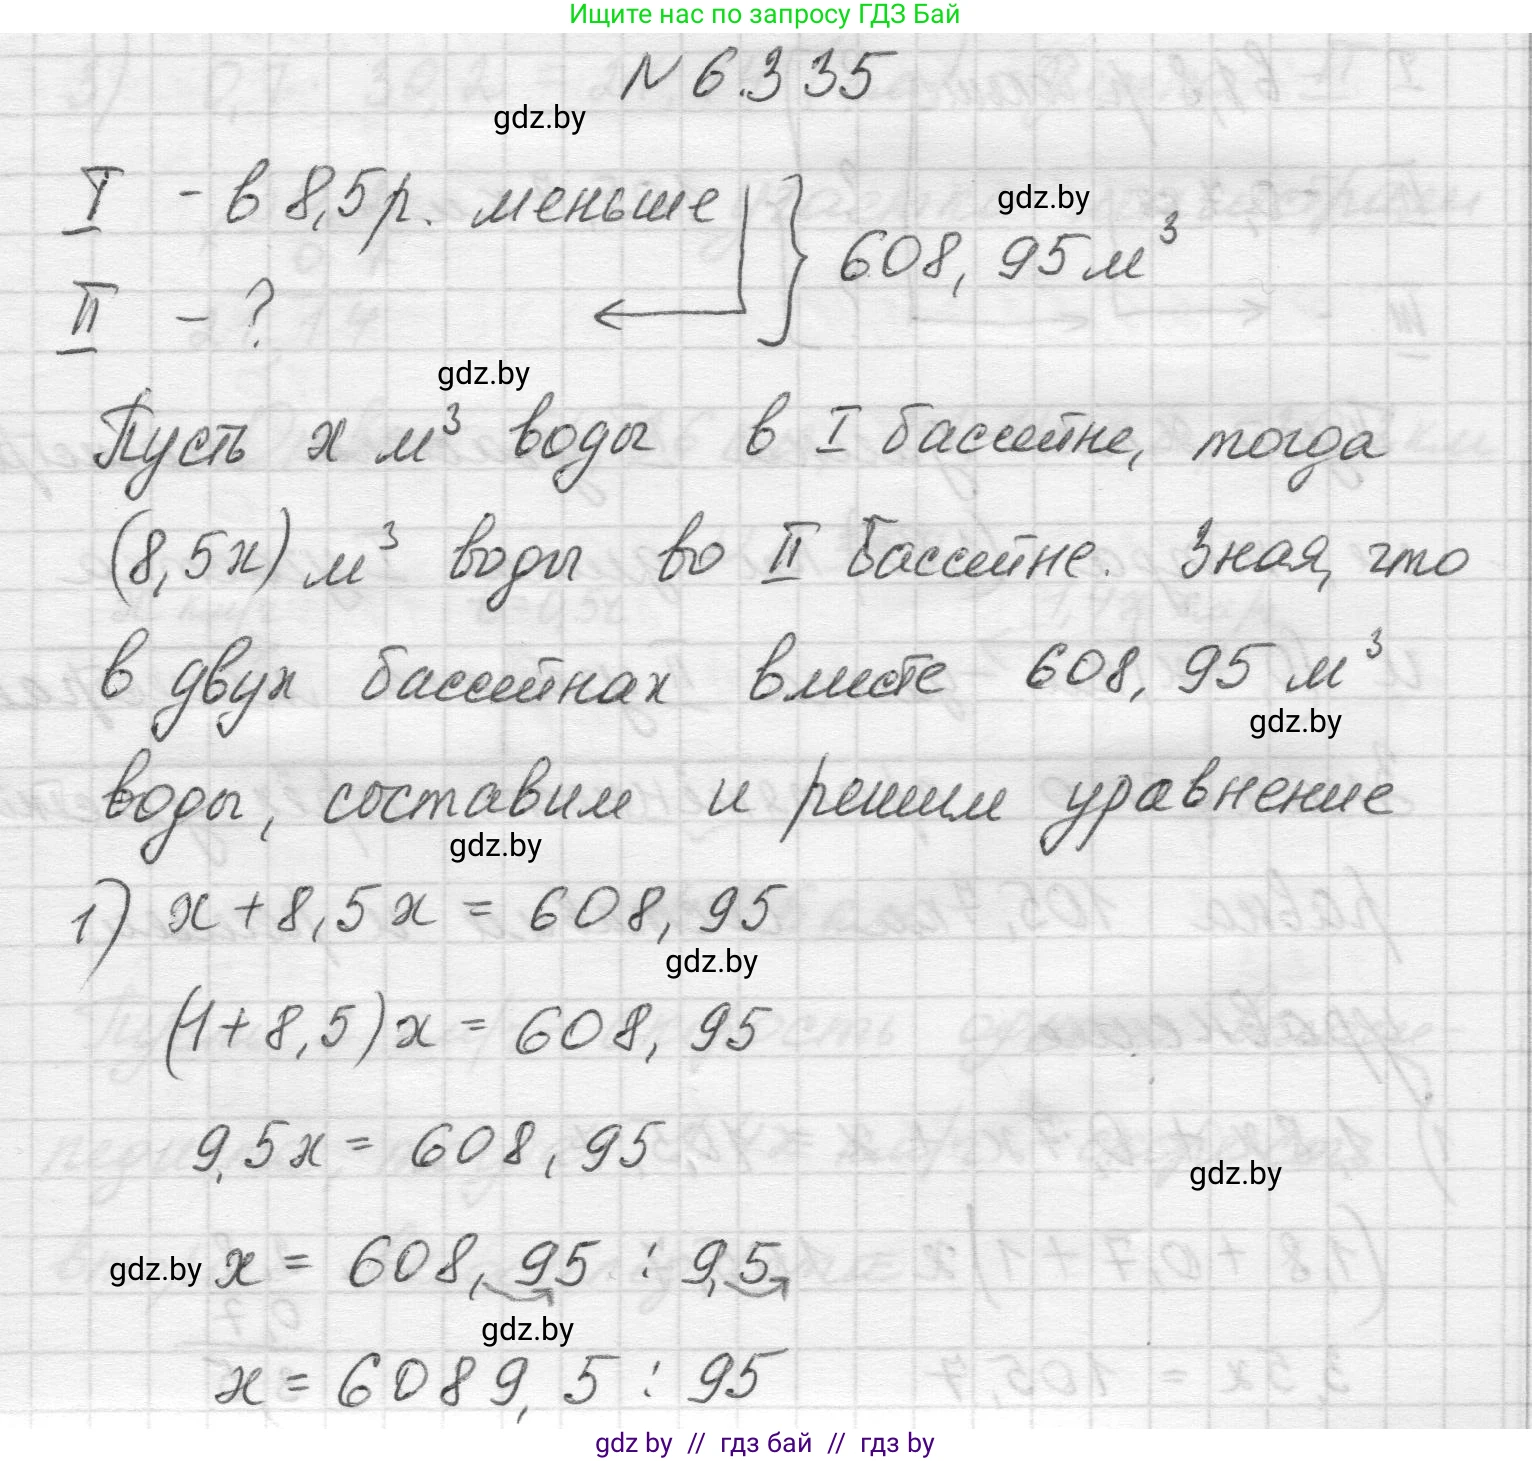 Ищите нас по запросу ГДЗ Бай
N 6.335
gdz.by
I - в 8,5 р. меньше
gdz.by
608,95 м³
II - ?
gdz.by
Пусть x м³ воды в I бассейне, тогда
(8,5x) м³ воды во II бассейне. Зная, что
в двух бассейнах вместе 608,95 м³
gdz.by
воды, составим и решим уравнение
gdz.by
1) x + 8,5x = 608,95
gdz.by
(1 + 8,5)x = 608,95
9,5x = 608,95
gdz.by
gdz.by x = 608,95 : 9,5
gdz.by
x = 6089,5 : 95
gdz by // гдз бай // гдз by